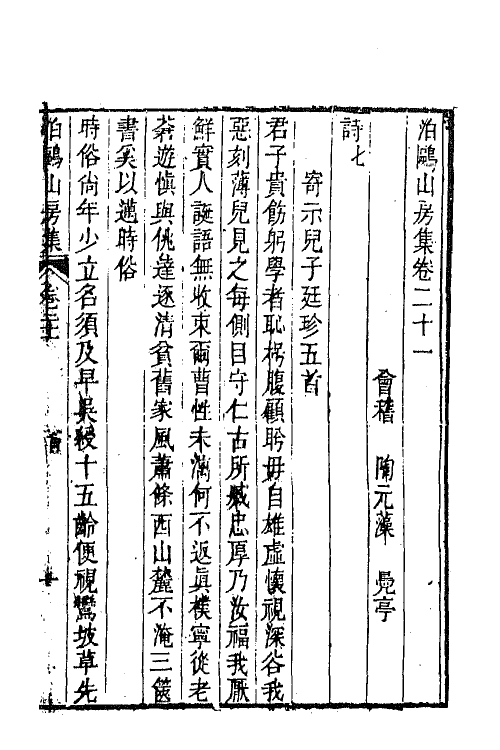 泊鷗山房集卷二十一
會稽 陶元藻 鳧亭
詩七
寄示兒子廷珍五首
君子貴飭躬學者恥枵腹顧盻毋自雄虛懷視深谷我
惡刻薄兒見之每側目守仁古所臧忠厚乃汝福我厭
鮮實人誕語無收束爾曹性未漓何不返眞樸寧從老
莽遊愼與佻達逐清貧舊家風蕭條西山麓不淹三篋
書奚以邁時俗
時俗尙年少立名須及早吳綬十五齡便視鸞坡草先
泊鷗山房集 卷二十一